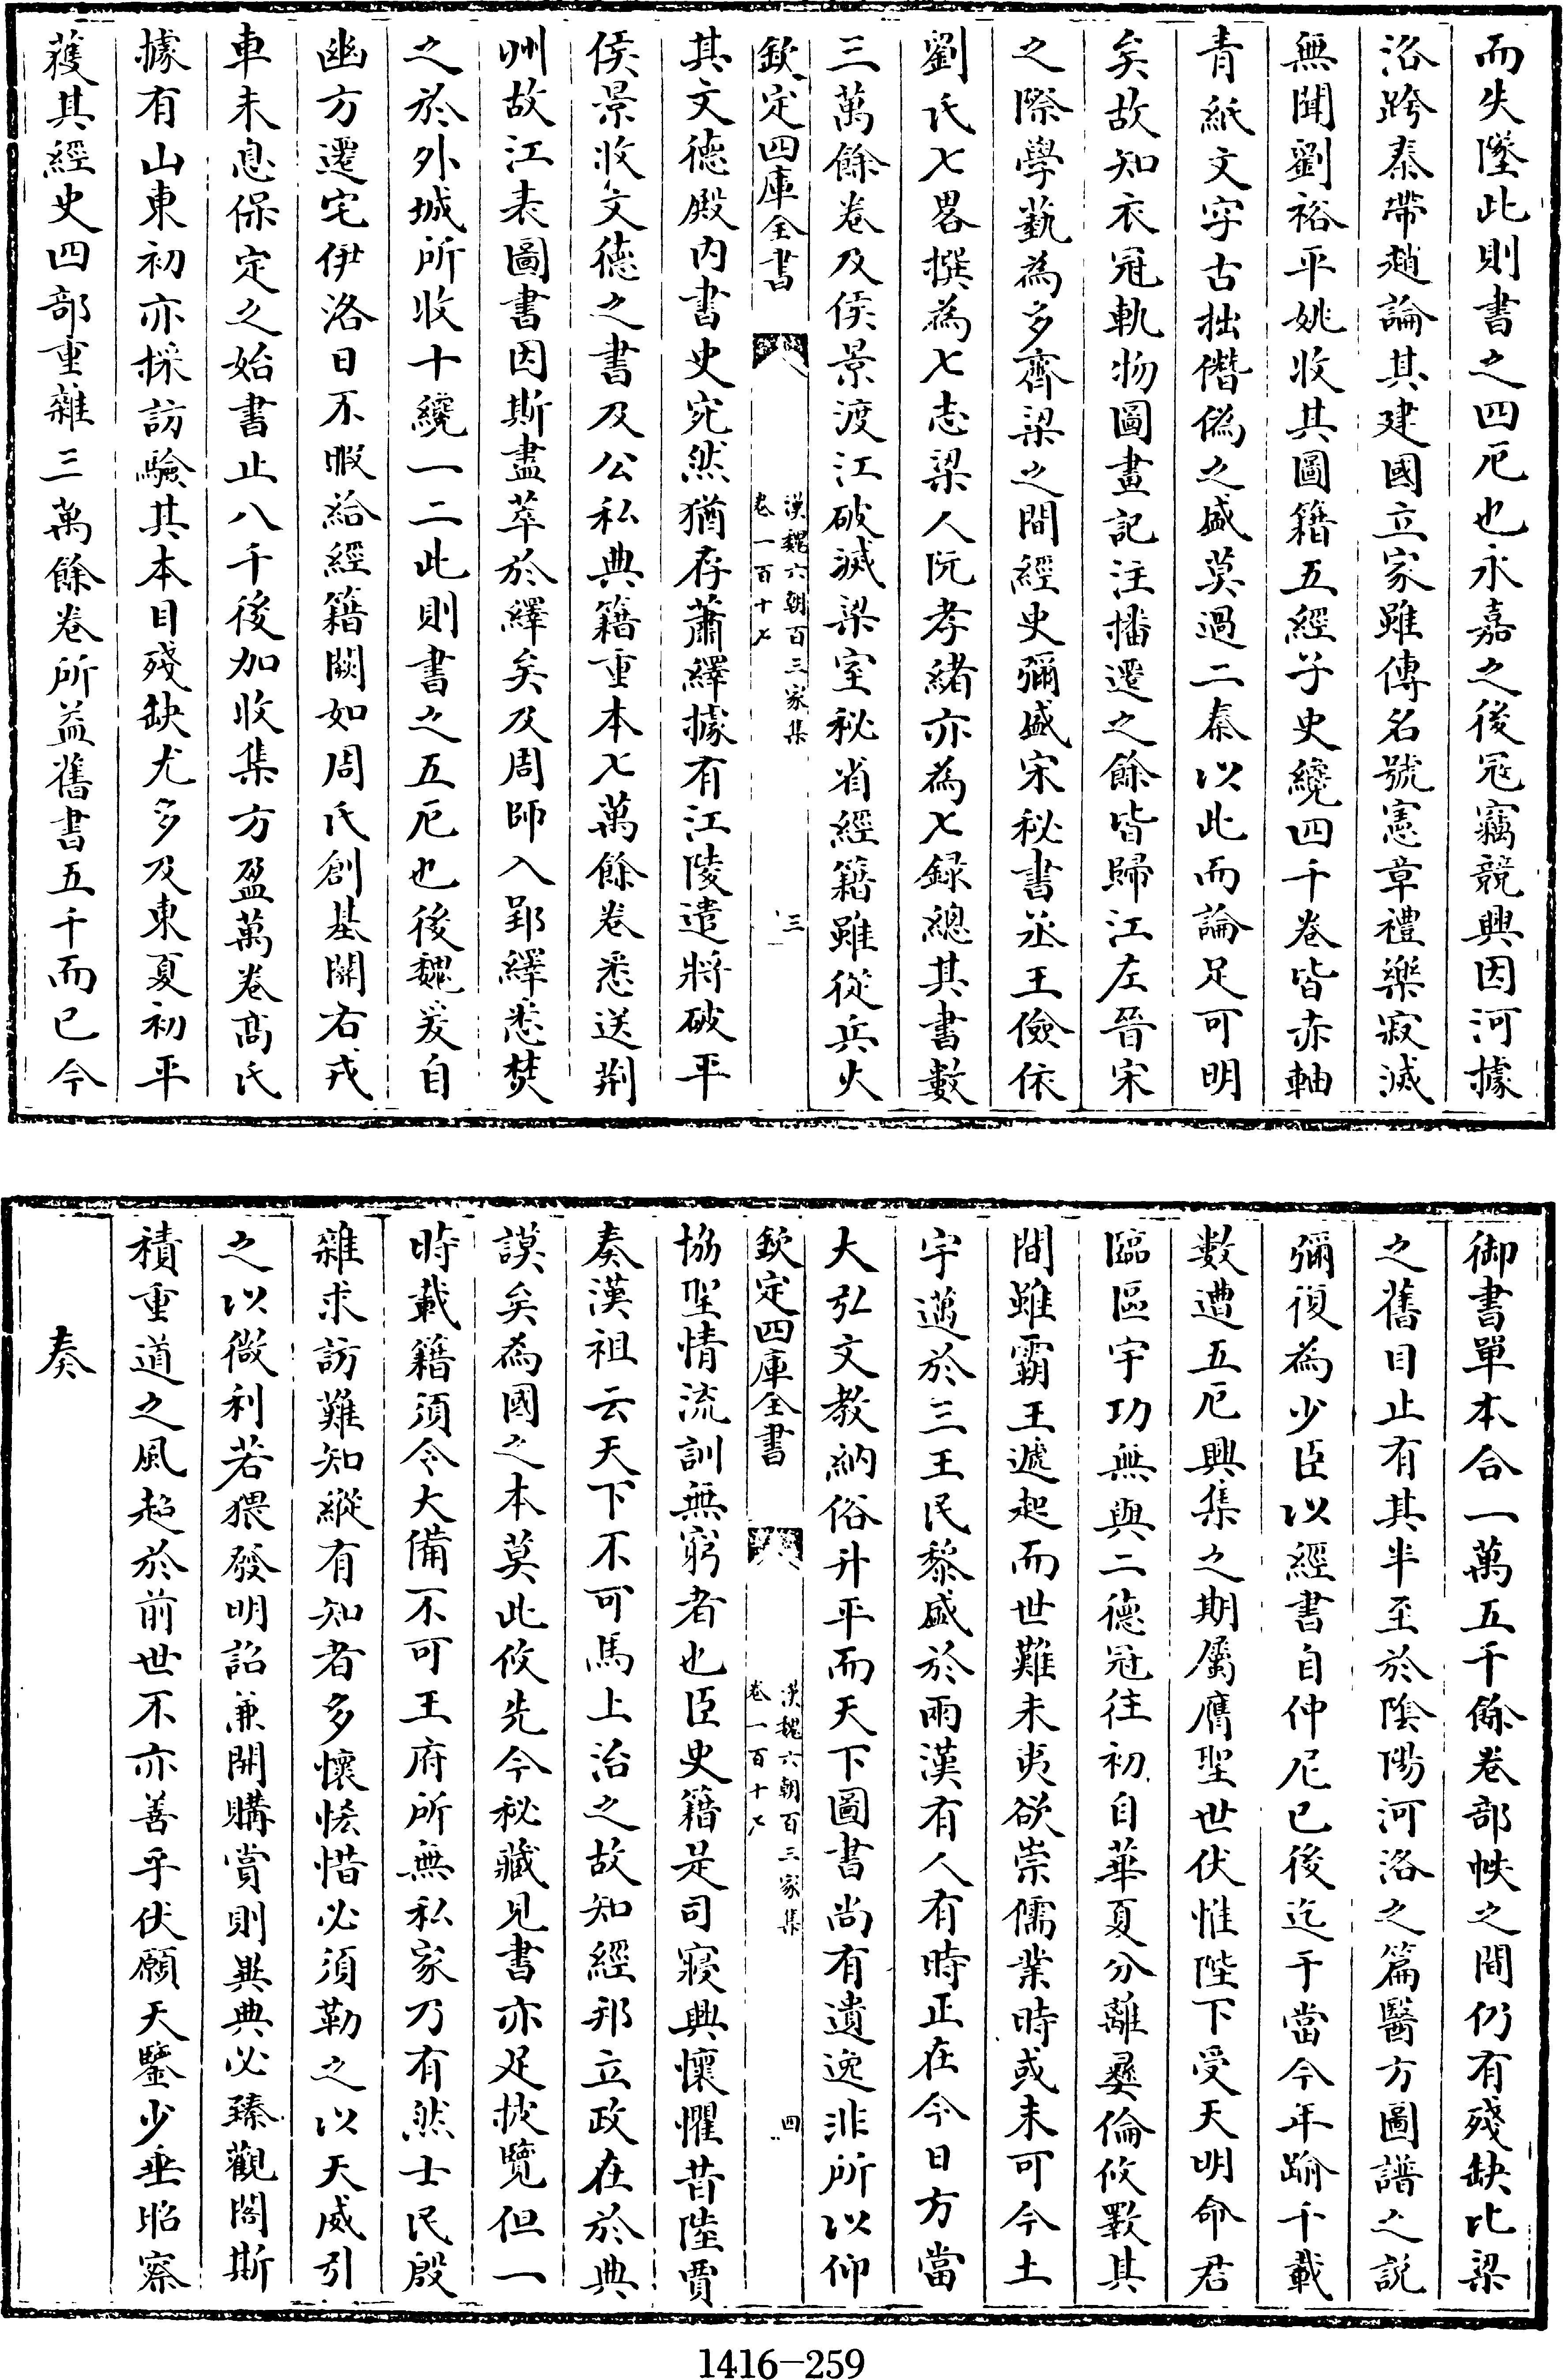 而失墜此則書之四厄也永嘉之後冦竊競興因河據
洛跨秦帶趙論其建國立家雖傳名號憲章禮樂寂滅
無聞劉裕平姚收其圖籍五經子史纔四千卷皆赤軸
青紙文字古拙僭偽之盛莫過二秦以此而論足可明
矣故知衣冠軌物圖畫記注播遷之餘皆歸江左晉宋
之際學藝為多齊梁之間經史彌盛宋秘書丞王儉依
劉氏七畧撰為七志梁人阮孝緒亦為七録總其書數
三萬餘卷及侯景渡江破滅梁室秘省經籍雖從兵火
欽定四庫全書
漢魏六朝百三家集
卷一百十七
三
其文德殿内書史宛然猶存蕭繹據有江陵遣將破平
侯景收文德之書及公私典籍重本七萬餘卷悉送荆
州故江表圖書因斯盡萃於繹矣及周師入郢繹悉焚
之於外城所收十纔一二此則書之五厄也後魏爰自
幽方遷宅伊洛日不暇給經籍闕如周氏創基關右戎
車未息保定之始書止八千後加收集方盈萬卷高氏
據有山東初亦採訪驗其本目殘缺尤多及東夏初平
獲其經史四部重雜三萬餘卷所益舊書五千而已今
御書單本合一萬五千餘卷部帙之間仍有殘缺比梁
之舊目止有其半至於陰陽河洛之篇醫方圖譜之説
彌復為少臣以經書自仲尼已後迄于當今年踰千載
數遭五厄興集之期屬膺聖世伏惟陛下受天明命君
臨區宇功無與二德冠往初自華夏分離彛倫攸斁其
間雖霸王遞起而世難未夷欲崇儒業時或未可今土
宇邁於三王民黎盛於兩漢有人有時正在今日方當
大弘文教納俗升平而天下圖書尚有遺逸非所以仰
欽定四庫全書
漢魏六朝百三家集
卷一百十七
四
協聖情流訓無窮者也臣史籍是司寢興懷懼昔陸賈
奏漢祖云天下不可馬上治之故知經邦立政在於典
謨矣為國之本莫此攸先今秘藏見書亦足披覽但一
時載籍須令大備不可王府所無私家乃有然士民殷
雜求訪難知縱有知者多懷悋惜必須勒之以天威引
之以微利若猥發明詔兼開購賞則異典必臻觀閣斯
積重道之風超於前世不亦善乎伏願天鑒少垂昭察
奏
1416-259